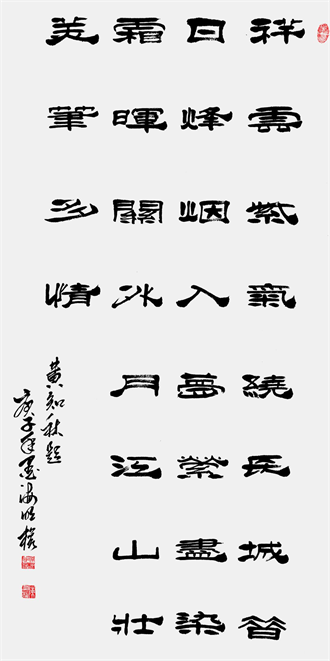 祥雲紫氣繞長城昔
日烽烟入夢縈盡染
霜暉關月江山壯
美筆多情
黃知秋題
庚子年墨海